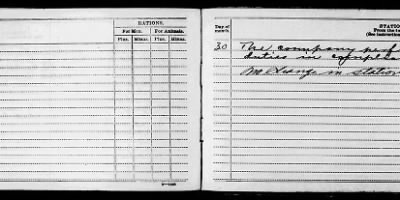 RATIONS.
For Men. For Animals.
Plus. Minus. Plus. Minus.
Day of month.
STATIO
From the la
(See instruction
30 The company perf
duties in
No change in station